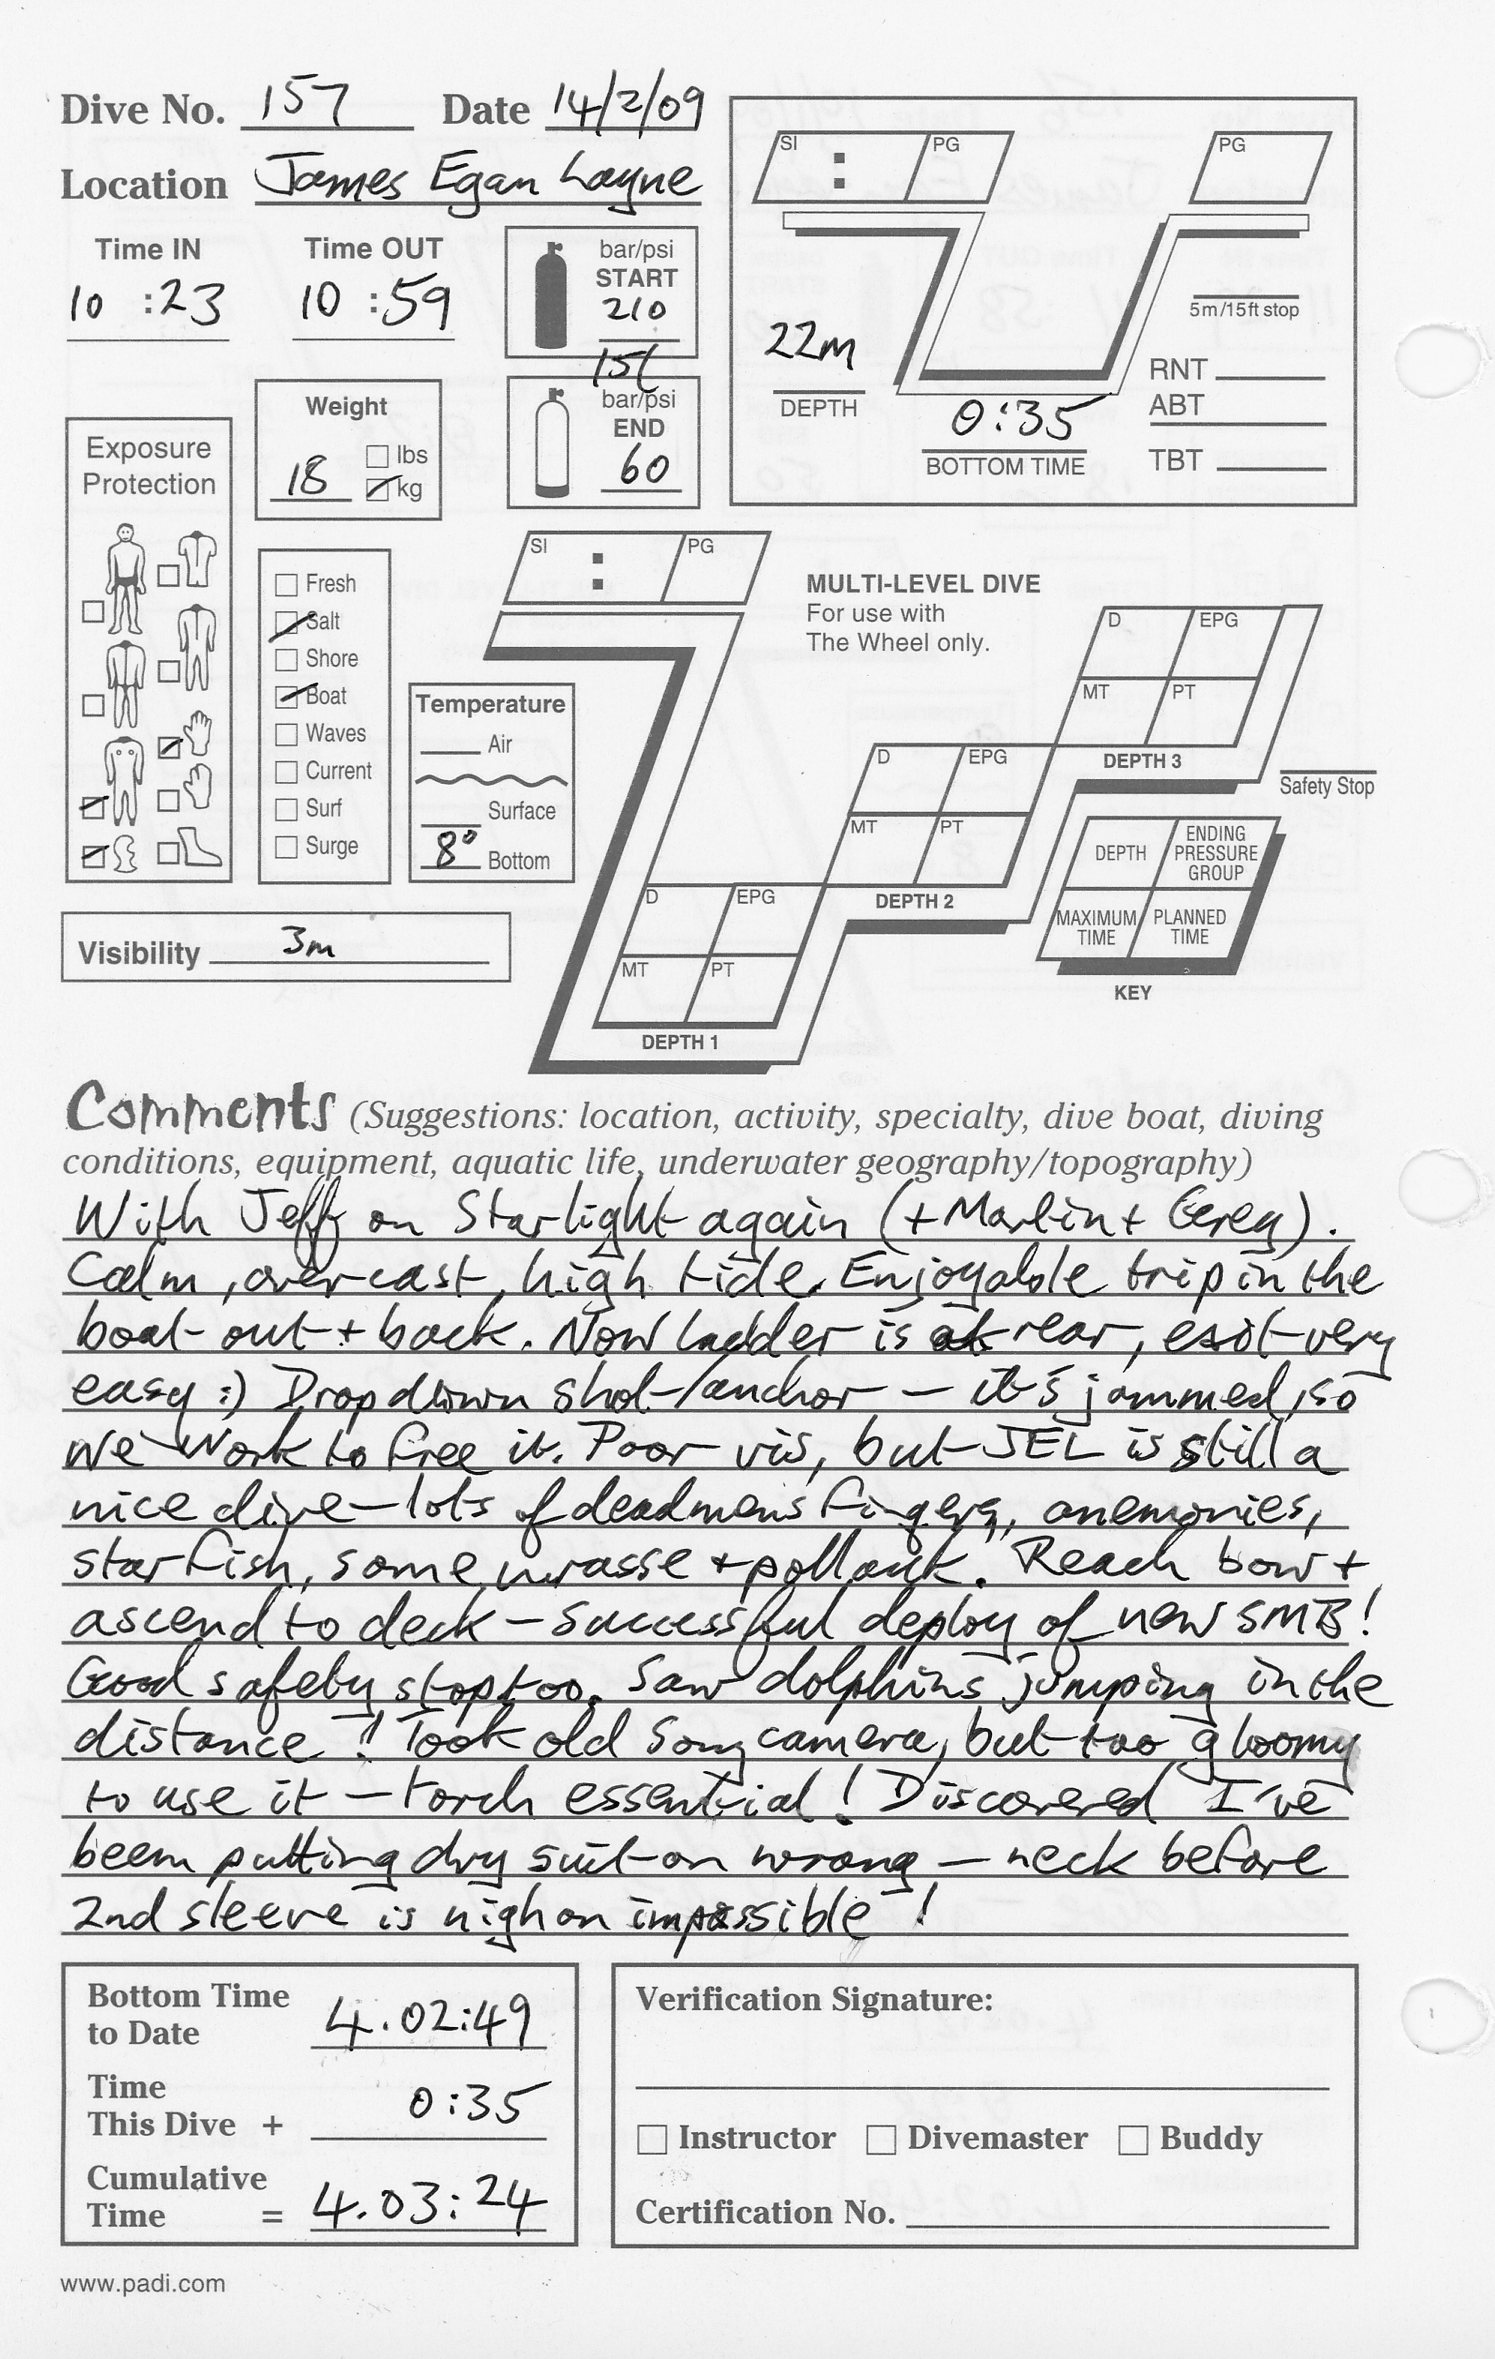 Dive No. 157 Date 14/2/09
Location James Egan Layne
Time IN 10 :23
Time OUT 10 :59
bar/psi
START
210
15l
bar/psi
END
60
Weight
18
lbs
kg
Exposure
Protection
Fresh
Salt
Shore
Boat
Waves
Current
Surf
Surge
Temperature
Air
Surface
8° Bottom
Visibility 3m
SI : PG
PG
22m
DEPTH
0:35
BOTTOM TIME
5m/15ft stop
RNT
ABT
TBT
SI : PG
MULTI-LEVEL DIVE
For use with
The Wheel only.
D EPG
MT PT
DEPTH 3
D EPG
MT PT
DEPTH 2
D EPG
MT PT
DEPTH 1
Safety Stop
DEPTH
ENDING
PRESSURE
GROUP
MAXIMUM
TIME
PLANNED
TIME
KEY
Comments (Suggestions: location, activity, specialty, dive boat, diving
conditions, equipment, aquatic life, underwater geography/topography)
With Jeff on Starlight again (+ Martin + Gereg).
Calm, overcast, high tide. Enjoyable trip in the
boat out + back. Now ladder is at rear, exit very
easy :) Drop down shot/anchor – it's jammed, so
we work to free it. Poor vis, but JEL is still a
nice dive – lots of deadmens fingers, anemonies,
starfish, some wrasse + pollack. Reach bow +
ascend to deck – successful deploy of new SMB!
Good safety stop too. Saw dolphins jumping in the
distance! Took old Sony camera, but too gloomy
to use it – torch essential! Discovered I've
been putting dry suit on wrong – neck before
2nd sleeve is nigh on impossible!
Bottom Time
to Date 4.02:49
Time
This Dive + 0:35
Cumulative
Time = 4.03:24
Verification Signature:
Instructor Divemaster Buddy
Certification No.
www.padi.com